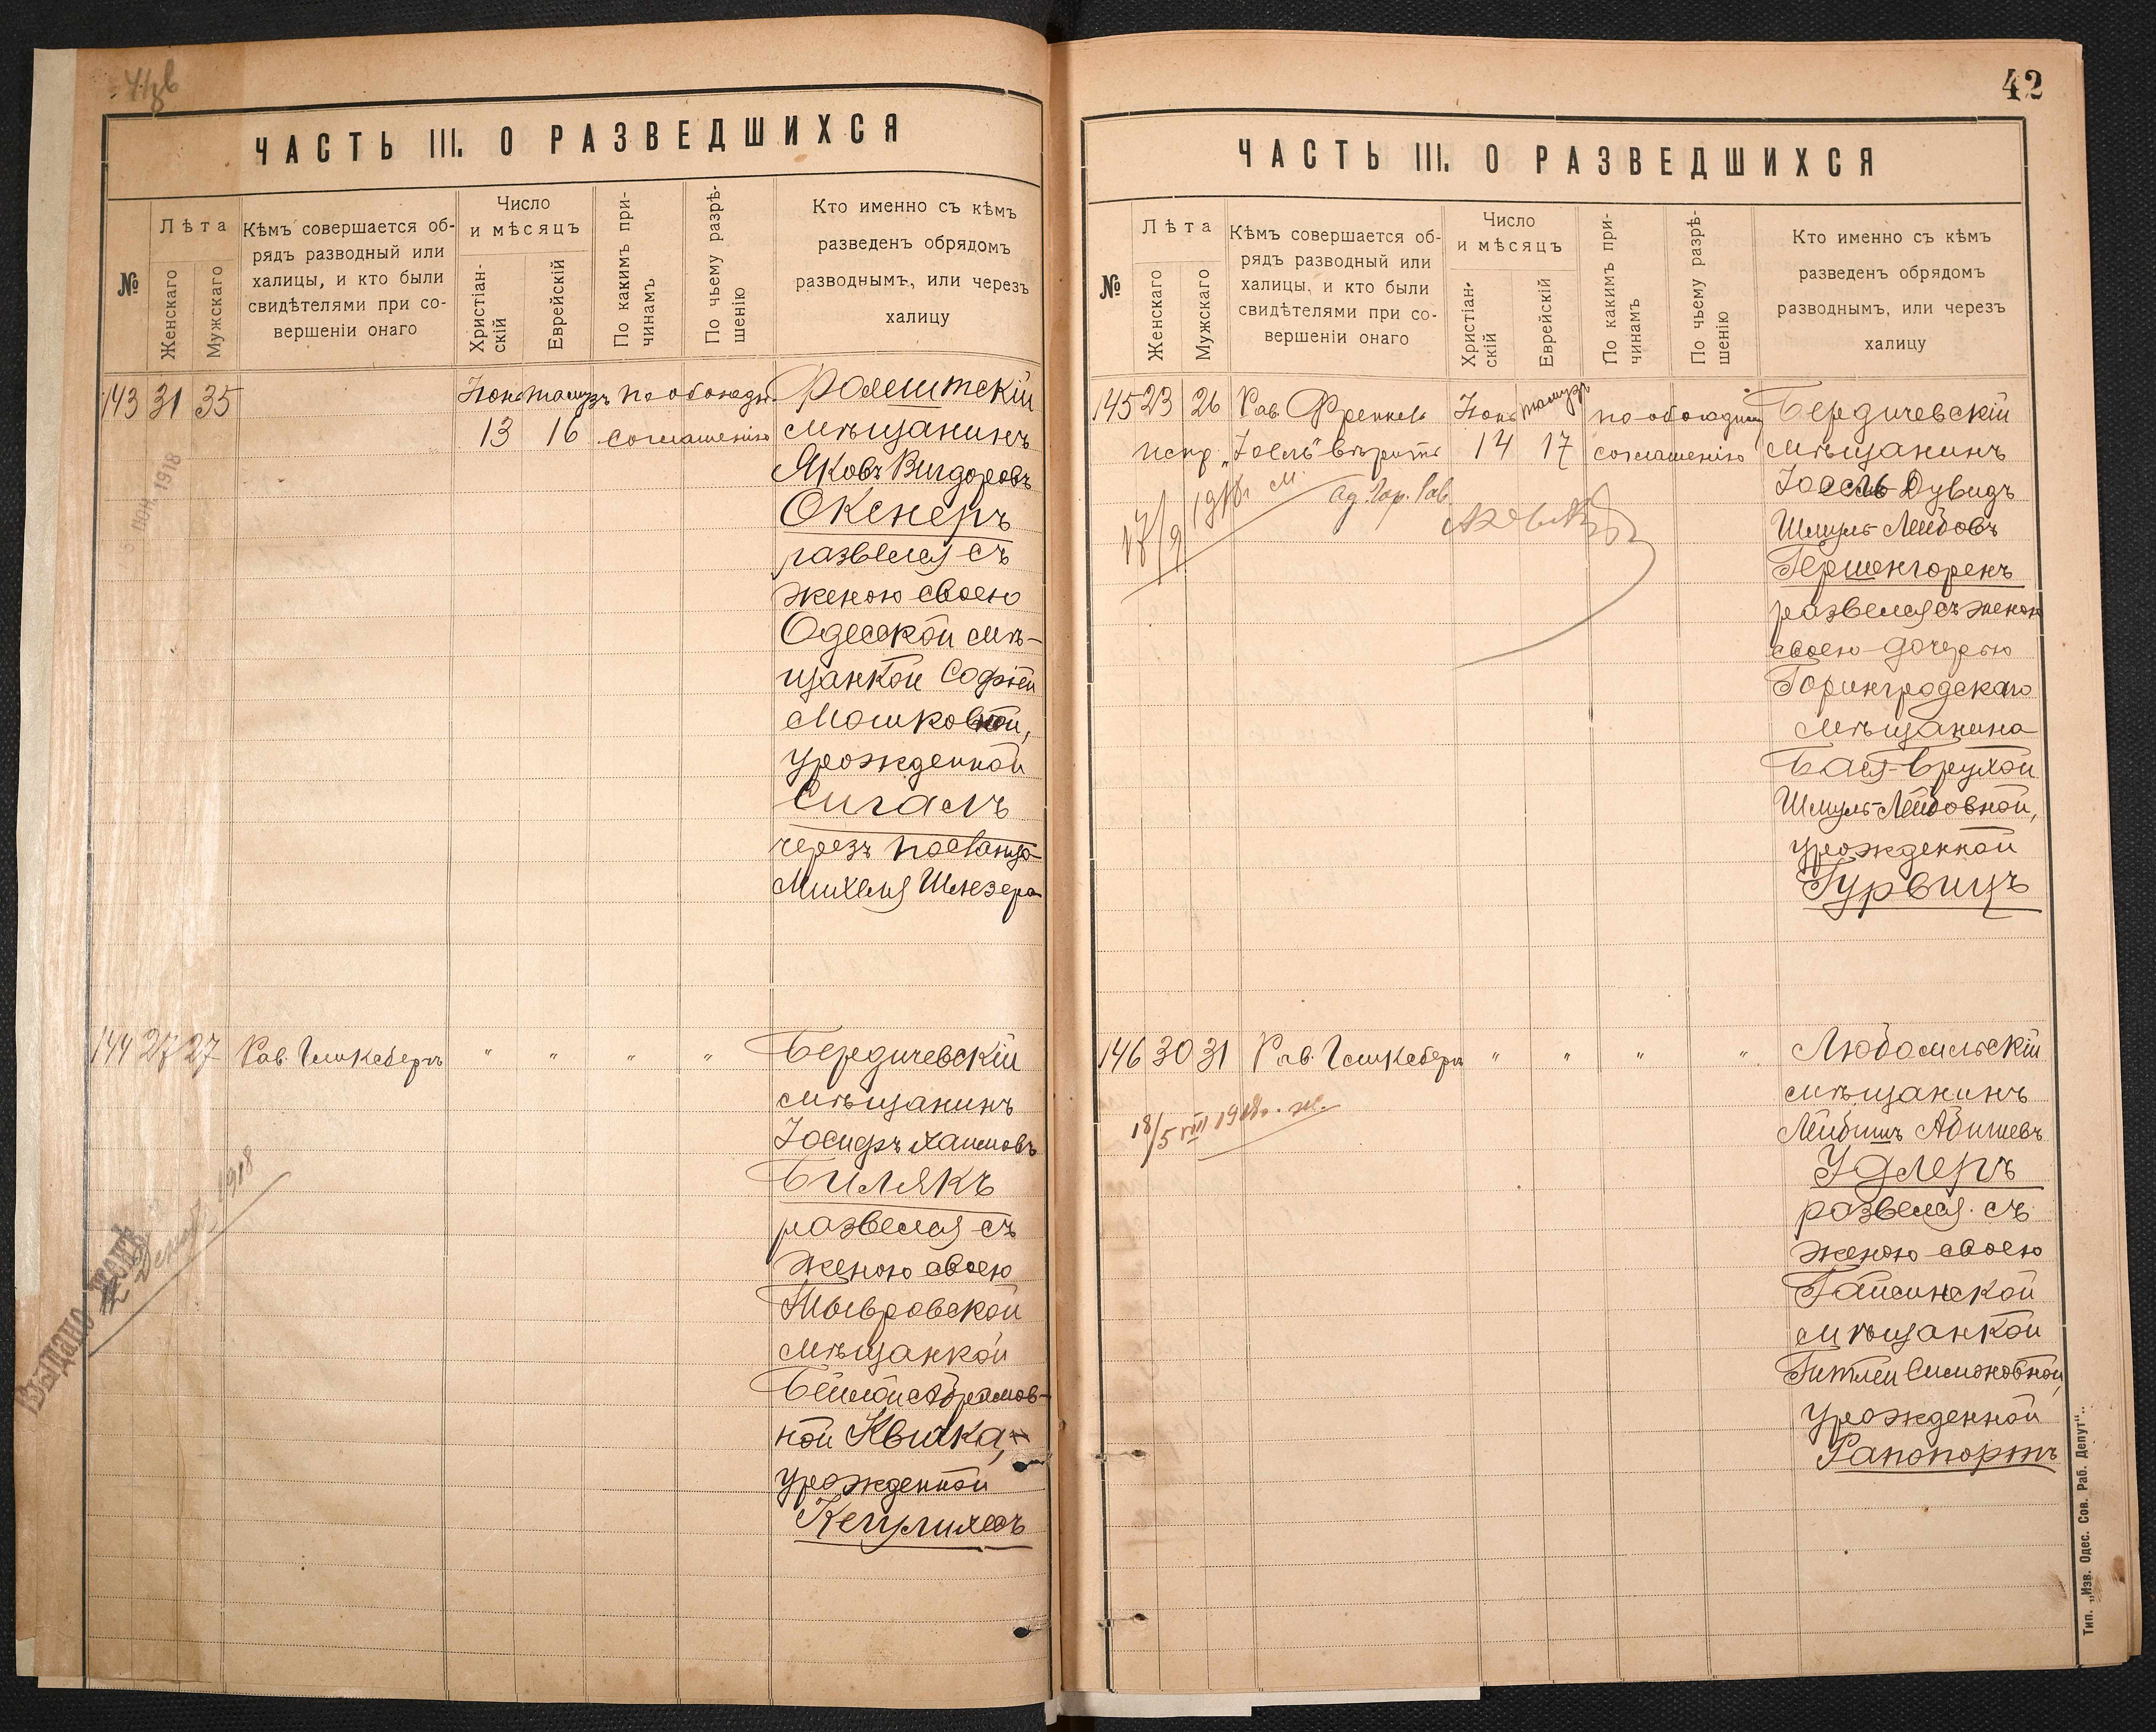 ЧАСТЬ III. О РАЗВЕДШИХСЯ
№
Лѣта
Женскаго
Мужскаго
Кѣмъ совершается об-
рядъ разводный или
халицы, и кто были
свидѣтелями при со-
вершеніи онаго
Число
и мѣсяцъ
Христіан-
скій
Еврейскій
По какимъ при-
чинамъ
По чьему разрѣ-
шенію
Кто именно съ кѣмъ
разведенъ обрядомъ
разводнымъ, или черезъ
халицу
143 31 35
Іюнь тамузъ по обоюдн.
13 16 соглашенію
Фолештскій
мѣщанинъ
Яковъ Вигдоровъ
Окснеръ
развелся съ
женою своею
Одесской мѣ-
щанкой Софіей
Мошковной,
урожденной
Сигалъ
черезъ
Михеля Шлезера
1918
144 27 27 Рав. Гликсбергъ " " " "
Бердичевскій
мѣщанинъ
Іосифъ Хаимовъ
Билякъ
развелся съ
женою своею
Тывровской
мѣщанкой
Бейлой Абрамов-
ной Квитка,
урожденной
Выдано
1918
42
ЧАСТЬ III. О РАЗВЕДШИХСЯ
№
Лѣта
Женскаго
Мужскаго
Кѣмъ совершается об-
рядъ разводный или
халицы, и кто были
свидѣтелями при со-
вершеніи онаго
Число
и мѣсяцъ
Христіан-
скій
Еврейскій
По какимъ при-
чинамъ
По чьему разрѣ-
шенію
Кто именно съ кѣмъ
разведенъ обрядомъ
разводнымъ, или черезъ
халицу
145 23 26 Рав. Френкель Іюнь тамузъ по обоюдному
испр. „Іосель" вѣрить 14 17 соглашенію
1918г. м.
Гор. Рав.
Бердичевскій
мѣщанинъ
Іосель Дувидъ
Шмуль-Лейбовъ
Гершенгоренъ
развелся съ женою
своею дочерью
Горинградскаго
мѣщанина
Бася-Брухой
Шмуль-Лейбовной,
урожденной
Гурвицъ
146 30 31 Рав. Гликсбергъ " " " "
18/5 VIII 1918г. ж.
Любомльскій
мѣщанинъ
Лейбишъ Абишевъ
Удлеръ
развелся съ
женою своею
Гайсинской
мѣщанкой
Гитлей Симоновной,
урожденной
Рапопортъ
Тип. „Изв. Одес. Сов. Раб. Депут".